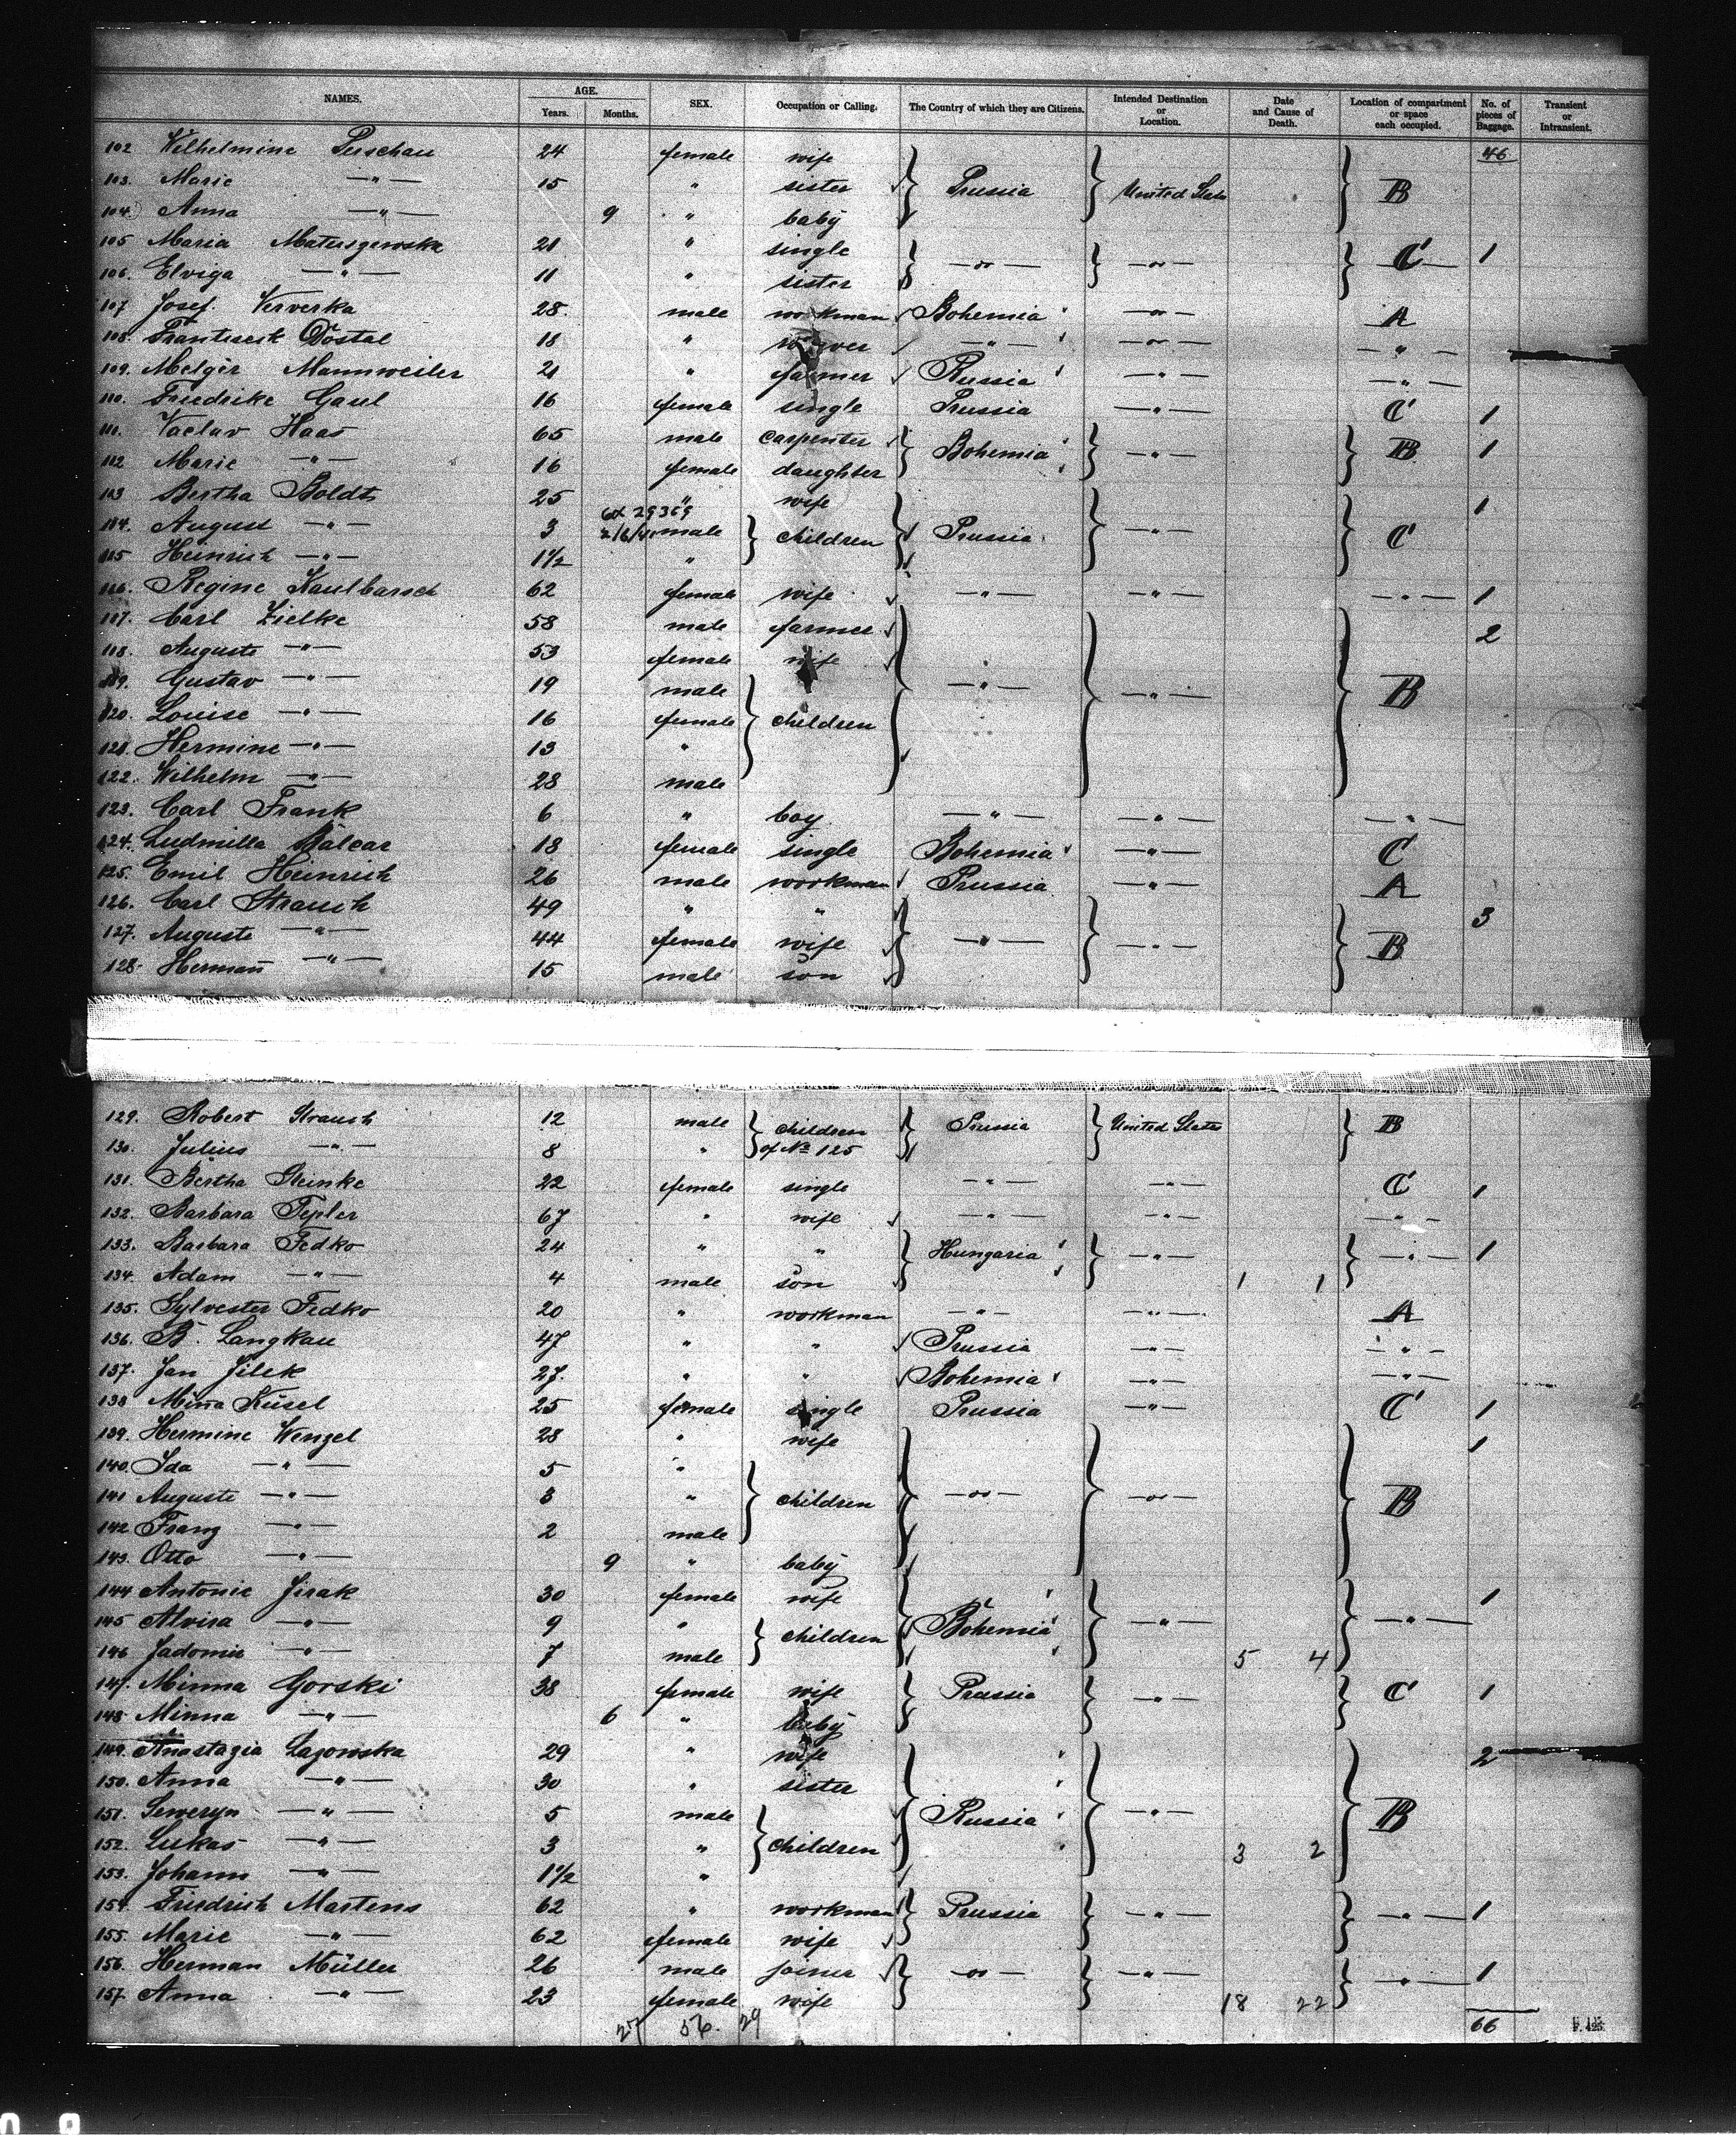 NAMES. AGE. Years. Months. SEX. Occupation or Calling. The Country of which they are Citizens. Intended Destination or Location. Date and Cause of Death. Location of compartment or space each occupied. No. of pieces of Baggage. Transient or Intransient.
102 Wilhelmine Perschau 24 female wife 46
103. Marie —"— 15 " sister Prussia United States B
104. Anna —"— 9 " baby
105 Maria Materszewska 21 " single —"— —"— C 1
106. Elviga —"— 11 " sister
107 Josef. Ververka 28. male workman Bohemia —"— A
108. Frantisek Dostal 18 " —"— —"— —"—
109. Melgir Mannweiler 21 " farmer Russia —"— —"—
110. Friedrike Gaul 16 female single Prussia —"— C 1
111. Vaclav Haas 65 male carpenter Bohemia —"— B 1
112 Marie —"— 16 female daughter
103 Bertha Boldt 25 " wife 1
6x 29369
114. August —"— 3 male children Prussia —"— C
115 Heinrich —"— 1½ "
116. Regine Kaulbarsch 62 female wife —"— —"— —"— 1
117. Carl Zielke 58 male farmer 2
118. Auguste —"— 53 female wife
119. Gustav —"— 19 male —"— —"— B
120. Louise —"— 16 female children
121. Hermine —"— 13 "
122. Wilhelm —"— 28 male
123. Carl Frank 6 " boy —"— —"— —"—
124. Ludmilla Balcar 18 female single Bohemia —"— C
125. Emil Heinrich 26 male workman Prussia —"— A
126. Carl Strauch 49 " " 3
127. Auguste —"— 44 female wife —"— —"— B
128. Hermañ —"— 15 male son
129. Robert Strauch 12 male children Prussia United States B
130. Julius —"— 8 " of No 125
131. Bertha Steinke 22 female single —"— —"— C 1
132. Barbara Tepler 67 " wife —"— —"— —"—
133. Barbara Fedko 24 " " Hungaria —"— —"— 1
134. Adam —"— 4 male son 1 1
135. Sylvester Fedko 20 " workman —"— —"— A
136. B. Langkau 47 " " Prussia —"— —"—
137. Jan Jilek 27. " " Bohemia —"— —"—
138 Miña Küsel 25 female single Prussia —"— C 1
139. Hermine Wenzel 28 " wife 1
140. Ida —"— 5 "
141 Auguste —"— 3 " children —"— —"— B
142 Franz —"— 2 male
143. Otto —"— 9 " baby
144 Antonie Jirak 30 female wife 1
145 Alvira —"— 9 " children Bohemia —"— —"—
146 —"— 7 male 5 4
147. Minna Gorski 38 female wife Prussia —"— C 1
148 Minna —"— 6 " baby
149. Anastazia Lazowska 29 " wife 2
150. Anna —"— 30 " sister
151. Seweryn —"— 5 male Russia —"— B
152. Lukas —"— 3 " children 3 2
153. Johann —"— 1½ "
154. Friedrich Martens 62 " workman Prussia —"— —"— 1
155. Marie —"— 62 female wife
156. Herman Müller 26 male joiner —"— —"— —"— 1
157. Anna —"— 23 female wife 18 22
27 56. 29 66